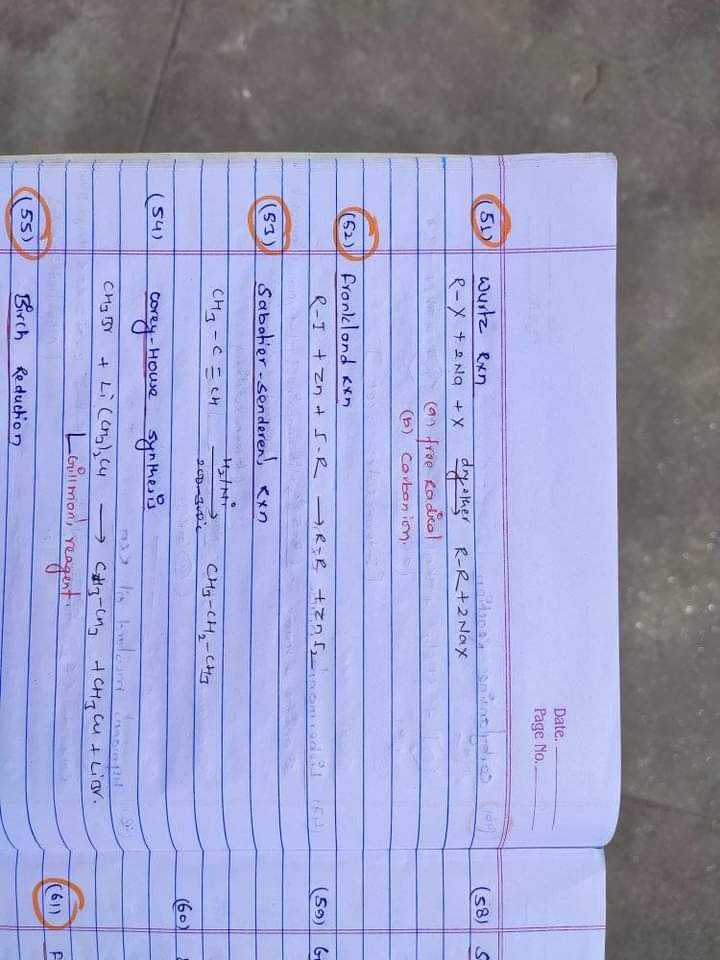 Date.
Page No.
(51) Wurtz rxn
R-X + 2Na + X dry ether → R-R + 2NaX
(a) free radical
(b) Carbanion.
(52) Frankland rxn
R-I + Zn + I-R → R-R + ZnI₂
(53) Sabatier-senderens rxn
CH₃-C≡CH H₂/Ni 200-300°C → CH₃-CH₂-CH₃
(54) Corey-House synthesis
CH₃Br + Li(CH₃)₂Cu → CH₃-CH₃ + CH₃Cu + LiBr.
Gillman's reagent.
(55) Birch Reduction
(58) S
(59) G
(60)
(61) P